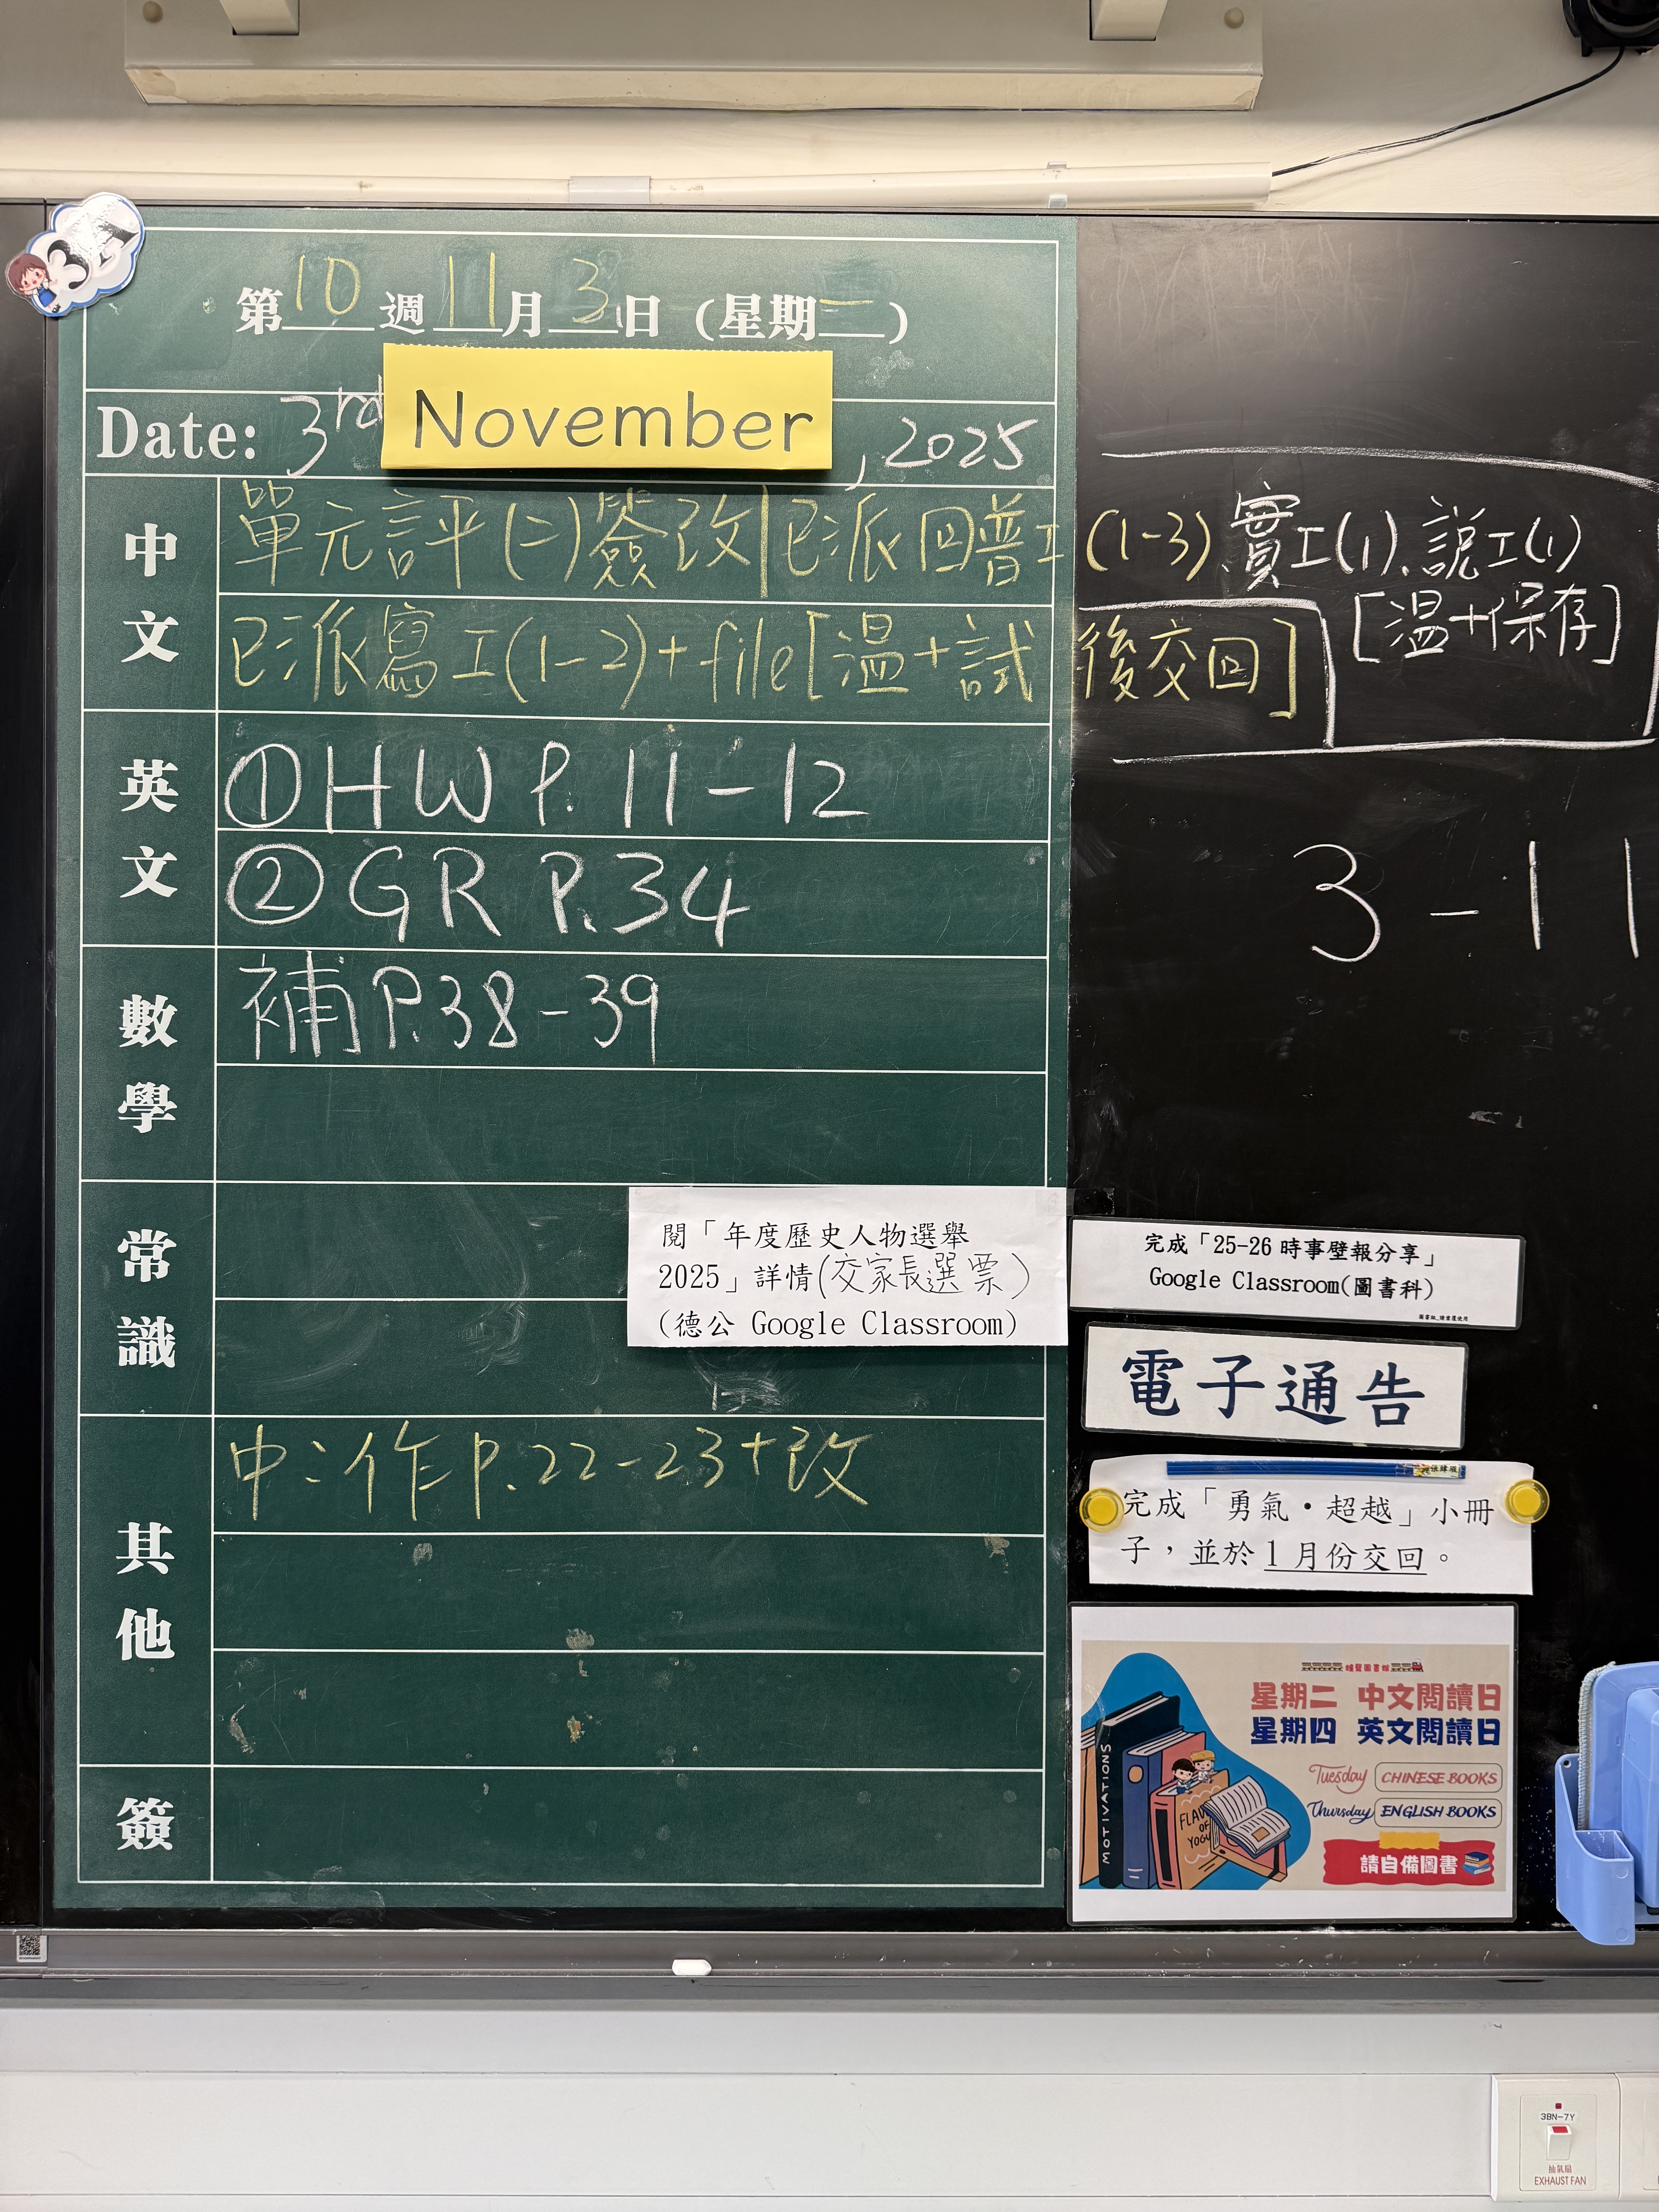 第10週11月3日（星期一）
Date: 3rd November, 2025
中文
單元評(二)簽改|已派回普工(1-3)、實工(1)、說工(1)
[溫+保存]
已派寫工(1-2)+file[溫+試後交回]
英文
①HW P.11-12
②GR P.34
3-11
數學
補P.38-39
常識
閱「年度歷史人物選舉
2025」詳情(交家長選票)
(德公 Google Classroom)
完成「25-26 時事壁報分享」
Google Classroom(圖書科)
電子通告
其他
中：作P.22-23+改
完成「勇氣・超越」小冊
子，並於1月份交回。
星期二 中文閱讀日
星期四 英文閱讀日
Tuesday CHINESE BOOKS
Thursday ENGLISH BOOKS
請自備圖書
MOTIVATIONS
簽
3BN-7Y
抽氣扇
EXHAUST FAN